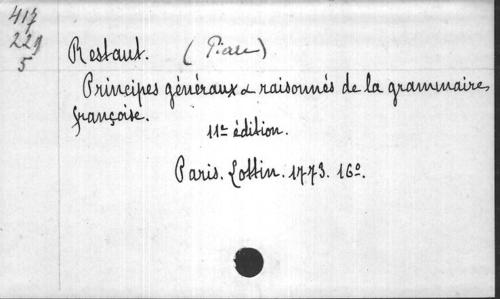 417
229
5
Restaut. (Pierre)
Principes généraux & raisonnés de la grammaire
françoise.
11e édition.
Paris. Lottin. 1773. 16º.